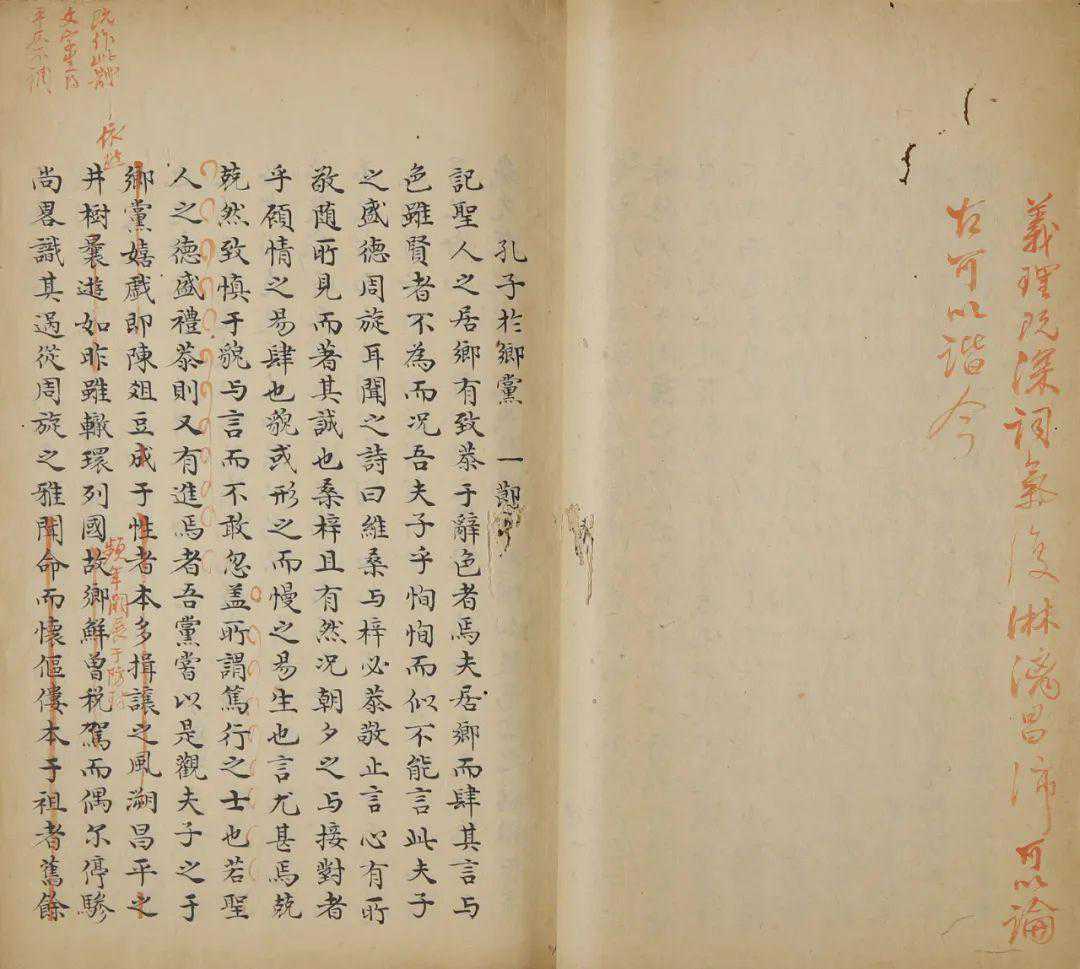 義理既深詞氣復淋漓昌沛可以論
古可以諧今
孔子於鄉黨 一節
記聖人之居鄉有致恭于辭色者焉夫居鄉而肆其言与
色雖賢者不為而况吾夫子乎恂恂而似不能言此夫子
之盛德周旋耳聞之詩曰維桑与梓必恭敬止言心有所
敬随所見而著其誠也桑梓且有然况朝夕之与接對者
乎顧情之易肆也貌或形之而慢之易生也言尤甚焉兢
兢然致慎于貌与言而不敢忽盖所謂篤行之士也若聖
人之德盛禮恭則又有進焉者吾黨嘗以是觀夫子之于
鄉黨嬉戲即陳俎豆成于性者本多揖讓之風溯昌平之
井樹曩遊如昨雖轍環列國故鄉鮮曾税駕而偶尔停驂
尚畧識其過從周旋之雅聞命而懷傴僂本于祖者舊餘
既作此